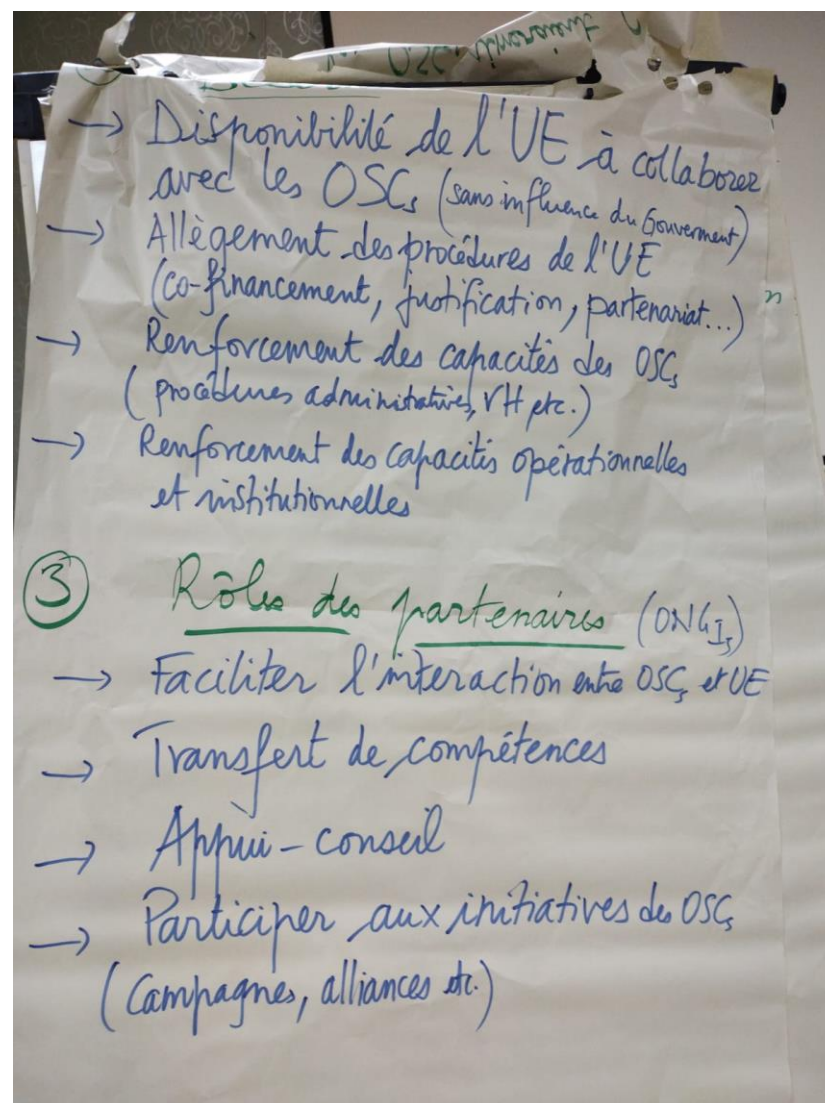 OSC
→ Disponibilité de l'UE à collaborer
avec les OSCs (sans influence du Gouverment)
→ Allègement des procédures de l'UE
(co-financement, justification, partenariat...)
→ Renforcement des capacités des OSCs
(procédures administratives, VH etc.)
→ Renforcement des capacités opérationnelles
et institutionnelles
③ Rôles des partenaires (ONGIs)
→ Faciliter l'interaction entre OSCs et UE
→ Transfert de compétences
→ Appui-conseil
→ Participer aux initiatives des OSCs
(Campagnes, alliances etc.)